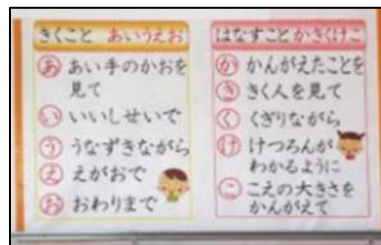 きくこと あいうえお
あ あい手のかおを
見て
い いいしせいで
う うなずきながら
え えがおで
お おわりまで
はなすこと かきくけこ
か かんがえたことを
き きく人を見て
く くぎりながら
け けつろんが
わかるように
こ こえの大きさを
かんがえて